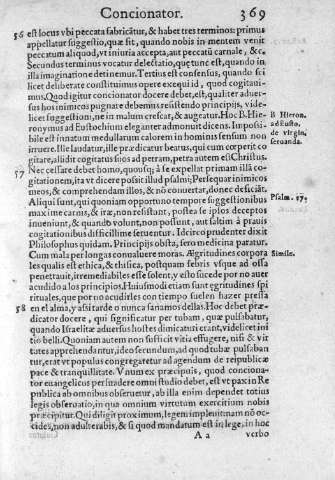 Concionator. 369
56 est locus vbi peccata fabricãtur, & habet tres terminos: primus
appellatur suggestio, quæ fit, quando nobis in mentem venit
peccatum aliquod, vt iniuria accepta, aut peccatũ carnale, &c.
Secundus terminus vocatur delectatio, quę tunc est, quando in
illa imaginatione detinemur. Tertius est consensus, quando sci
licet deliberate constituimus opere exequi id, quod cogitaui-
mus. Quod igitur concionator docere debet, est, qualiter aduer
sus hos inimicos pugnare debemus resistendo principijs, vide-
licet suggestioni, ne in malum crescat, & augeatur. Hoc B. Hie-
ronymus ad Eustochium eleganter admonuit dicens. Impossi-
bile est innatum medullarum calorem in hominis sensum non
irruere. Ille laudatur, ille prædicatur beatus, qui cum cœperit co
gitare, allidit cogitatus suos ad petram, petra autem est Christus.
B Hieron.
ad Eusto.
de virgin.
seruanda.
57 Nec cessare debet homo, quousq; à se expellat primam illã co-
gitationem, ita vt dicere possit illud psalmi; Persequar inimicos
meos, & comprehendam illos, & nõ conuertar, donec deficiãt.
Psalm. 17.
Aliqui sunt, qui quoniam opportuno tempore suggestionibus
maxime carnis, & iræ, non resistunt, postea se ipsos deceptos
inueniunt, & quando volunt, non possunt, aut saltim à prauis
cogitationibus difficillime seruentur. Idcirco prudenter dixit
Philosophus quidam. Principijs obsta, sero medicina paratur.
Cum mala per longas conualuere moras. Ægritudines corpora
Simile.
les qualis est ethica, & thisica, postquam febris vsque ad ossa
penetrauit, irremediabiles esse solent, y esto sucede por no auer
acudido a los principios. Huiusmodi etiam sunt ęgritudines spi
rituales, que por no acudirles con tiempo suelen hazer pressa
58 en el alma, y assi tarde o nunca sanamos dellas. Hoc debet præ-
dicator docere, qui significatur per tubam, quæ pulsabatur,
quando Israelitæ aduersus hostes dimicaturi erant, videlicet ini
tio belli. Quoniam autem non sufficit vitia effugere, nisi & vir
tutes apprehendantur, ideo secundum, ad quod tubæ pulsaban
tur, erat vt populus congregaretur ad agendum de reipublicæ
pace & tranquillitate. Vnum ex præcipuis, quod conciona-
tor euangelicus persuadere omni studio debet, est vt pax in Re
publica ab omnibus obseruetur, ab illa enim dependet totius
legis obseruatio, in qua omnium virtutum exercitium nobis
præcipitur. Qui diligit proximum, legem impleuit: nam nõ oc-
cides, non adulterabis, & si quod mandatum est in lege, in hoc
A a verbo